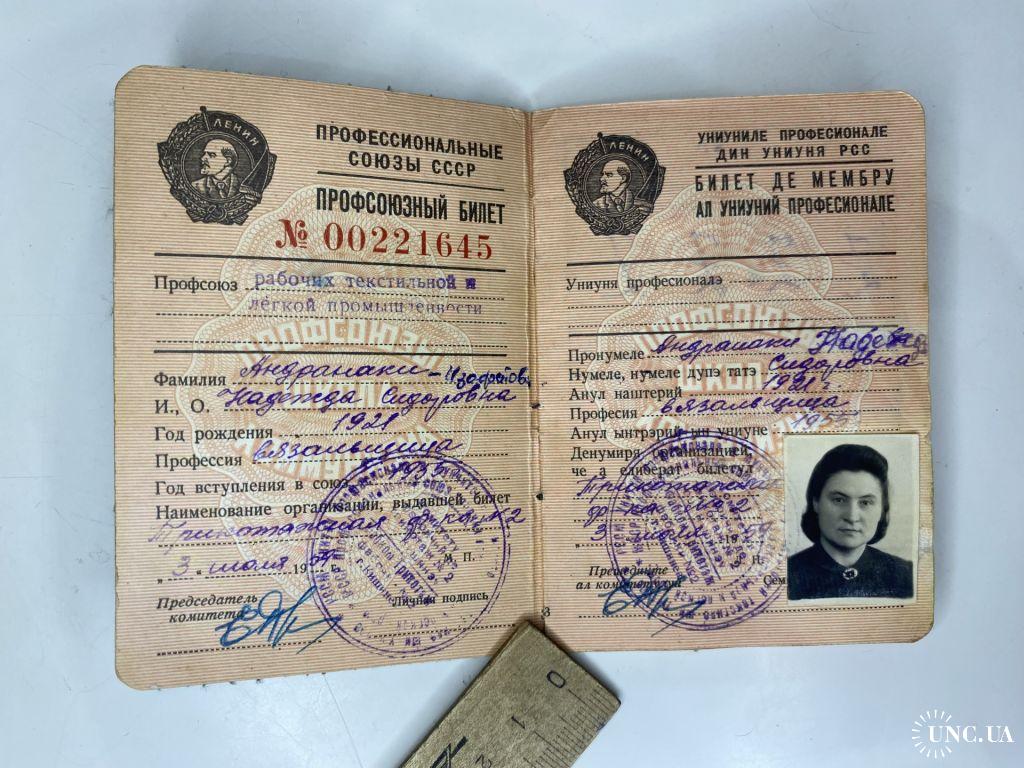 ЛЕНИН
ПРОФЕССИОНАЛЬНЫЕ
СОЮЗЫ СССР
ПРОФСОЮЗНЫЙ БИЛЕТ
№ 00221645
Профсоюз рабочих текстильной и
лёгкой промышленности
Фамилия Андрамаки-
И., О. Надежда Сидоровна
Год рождения 1921
Профессия вязальщица
Год вступления в союз
Наименование организации, выдавшей билет
Трикотажная ф-ка №2
„3" июля 19
М. П.
Председатель
комитета
Личная подпись
ЛЕНИН
УНИУНИЛЕ ПРОФЕСИОНАЛЕ
ДИН УНИУНЯ РСС
БИЛЕТ ДЕ МЕМБРУ
АЛ УНИУНИЙ ПРОФЕСИОНАЛЕ
Униуня професионалэ
Пронумеле Андрамаки Надежда
Нумеле, нумеле дупэ татэ Сидоровна
Анул наштерий 1921
Професия вязальщица
Анул ынтрэрий ын униуне
Денумиря организацией,
че а елиберат билетул
Трикотажная
ф-ка №2
„3" июля 19
Прешединте
ал комитетулуй
0
1
2
UNC.UA